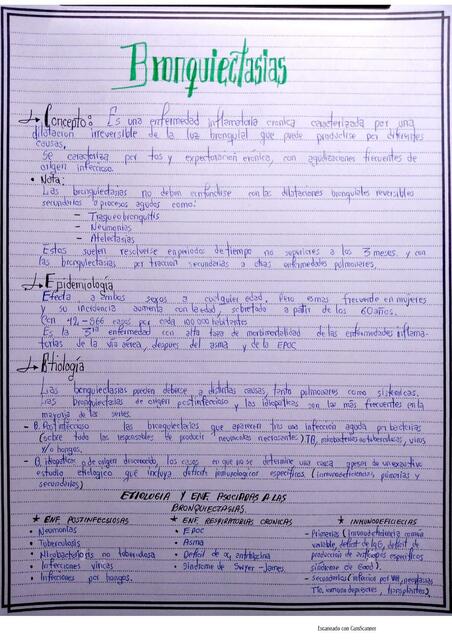 Bronquiectasias
Concepto: Es una enfermedad inflamatoria crónica caracterizada por una
dilatación irreversible de la luz bronquial que puede producirse por diferentes
causas,
Se caracteriza por tos y expectoración crónica, con agudizaciones frecuentes de
origen infeccioso.
• Nota:
Las bronquiectasias no deben confundirse con las dilataciones bronquiales reversibles
secundarias a procesos agudos como:
- Traqueobronquitis
- Neumonias
- Atelectasias
Estas suelen resolverse en periodos de tiempo no superiores a los 3 meses. y con
las bronquiectasias por traccion secundarias a otras enfermedades pulmonares.
Epidemiología
Efecta a ambos sexos a cualquier edad. Pero es mas frecuente en mujeres
y su incidencia aumenta con la edad, sobretodo a partir de los 60 años.
Con 42 - 566 casos por cada 100 000 habitantes
Es la 3ra enfermedad con alta tasa de morbimortalidad de las enfermedades inflama-
torias de la vía aérea, despues del asma y de la EPOC
Etiología
Las bronquiectasias pueden deberse a distintas causas, tanto pulmonares como sistemicas.
Las bronquiectasias de origen postinfeccioso y las idiopaticas son las más frecuentes en la
mayoria de las series.
- B. Postinfeccioso las bronquiectasias que aparecen tras una infección aguda por bacterias
(sobre todo las responsables de producir neumonias necrosantes). TB, micobacterias no tuberculosas, virus
y/o hongos.
- B. idiopaticas o de origen desconocido, los casos en que no se determine una causa apesar de un exhaustivo
estudio etiologico que incluya deficits inmunologicos especificos. (inmunodeficiencias, primarias y
secundarias)
ETIOLOGIA Y ENF. ASOCIADAS A LAS
BRONQUIECTASIAS.
★ ENF. POSTINFECCIOSAS
• Neumonías
• Tuberculosis
• Micobacteriosis no tuberculosa
• Infecciones víricas
• Infecciones por hongos.
★ ENF. RESPIRATORIAS CRONICAS
• EPOC
• Asma
• Deficit de α1 antitripsina
• Sindrome de Swyer-James.
★ INMUNODEFICIECIAS
- Primarias (Inmunodeficiencia común
variable, deficit de IgG, deficit de
producción de anticuerpos especificos
sindrome de Good).
- Secundarios (infeccion por VIH, neoplasias
TTo. inmunodepresores, transplantes)
Escaneado con CamScanner